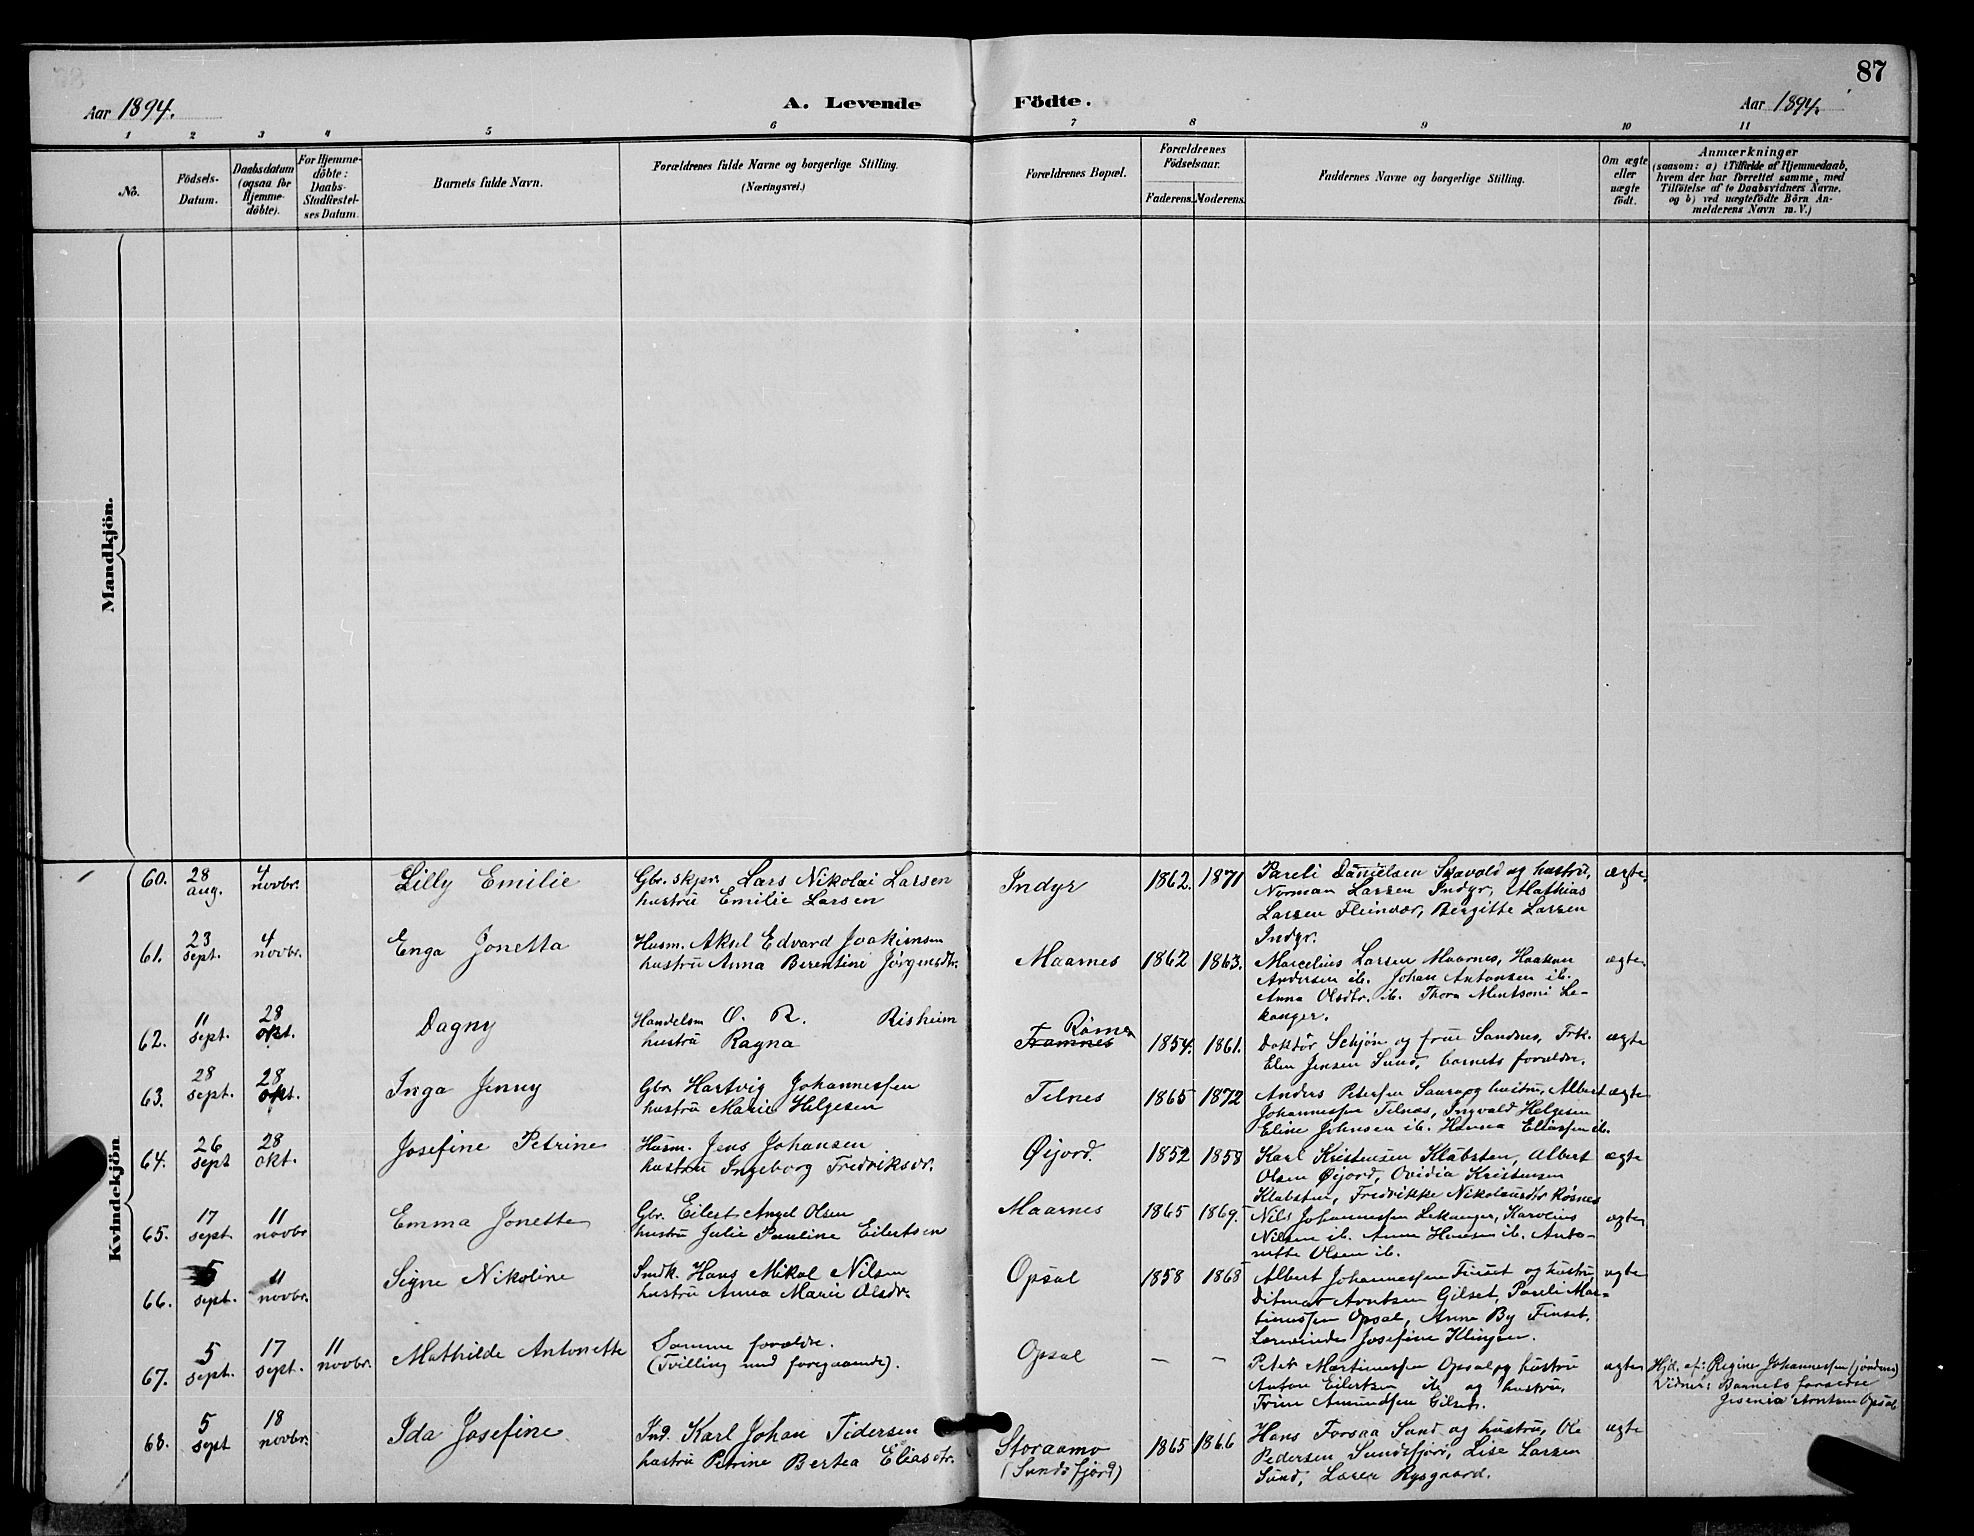 87
Aar 1894.
A. Levende Födte.
Aar 1894.
1 2 3 4 5 6 7 8 9 10 11
No.
Födsels-
Datum.
Daabsdatum
(ogsaa for
Hjemme-
döbte).
For Hjemme-
döbte:
Daabs-
Stadfæstel-
ses Datum.
Barnets fulde Navn.
Forældrenes fulde Navne og borgerlige Stilling.
(Næringsvei.)
Forældrenes Bopæl.
Forældrenes
Födselsaar.
Faderens. Moderens.
Faddernes Navne og borgerlige Stilling.
Om ægte
eller
uægte
födt.
Anmærkninger
(saasom: a) i Tilfælde af Hjemmedaab,
hvem der har forrettet samme, med
Tilföielse af to Daabsvidners Navne,
og b) ved uægtefödte Börn An-
melderens Navn m. V.)
Mandkjön.
Kvindekjön
60. 28 aug. 4 novbr. Lilly Emilie
Gbr. skpr. Lars Nikolai Larsen
hustru Emilie Larsen
Indyr 1862. 1871
Pareli Danielsen Skavold og hustru,
Norman Larsen Indyr, Mathias
Larsen Fleindær, Bergitte Larsen
Indyr.
ægte.
61. 23 sept. 4 novbr. Enga Jonetta
Husm. Aksel Edvard Joakimsen
hustru Anna Berentine Jørgensdtr.
Maarnes 1862 1863.
Marcelius Larsen Maarnes, Haakon
Andersen ib. Johan Antonsen ib.
Anna Olsdtr. ib. Thora Mentsoni Le-
kanger.
ægte
62. 11 sept. 28 okt. Dagny
Handelsm O. R. Risheim
hustru Ragna
Framnes 1854. 1861.
Doktor Schjøn og frue Sandnes, Frk.
Elen Jensen Sund, barnets forældre.
ægte
63. 28 sept. 28 okt. Inga Jenny
Gbr Hartvig Johannessen
hustru Marie Helgesen
Telnes 1865 1872
Anders Petersen Saura og hustru, Albert
Johannessen Telnes, Ingvald Helgesen
Eline Johnsen ib. Hanna Eliassen ib.
ægte
64. 26 sept 28 okt. Josefine Petrine
Husm. Jens Johansen
hustru Ingeborg Fredriksdr.
Øijord. 1852 1858
Karl Kristensen Klabsten, Albert
Olsen Øijord, Ovidia Kristensen
Klabsten, Fredrikke Nikolausdtr Røsnes
ægte
65. 17 sept. 11 novbr Emma Jonette
Gbr. Eilert Angel Olsen
hustru Julie Pauline Eilertsen
Maarnes 1865 1869.
Nils Johannessen Lekanger, Karolius
Nilsen ib. Anna Hansen ib. Anto-
nette Olsen ib.
ægte
66. 5 sept. 11 novbr. Signe Nikoline
Smdk. Hans Mikal Nilsen
hustru Anna Marie Olsdr.
Opsal 1858 1868
Albert Johannessen Finset og hustru,
Ditmar Arntsen Gilset, Pareli Mar-
tinussen Opsal, Anne By Finset.
Lærerinde Josefine Klingen.
ægte
67. 5 sept. 17 sept. 11 novbr. Mathilde Antonette
Samme forældre.
(Tvilling med foregaaende).
Opsal — —
Peter Martinussen Opsal og hustru
Anton Eilertsen ib og hustru,
Trine Amundsen Gilset.
ægte
Hjd. af: Regine Johannessen (jordm)
Vidner: Barnets forældre
Arntsen Opsal
68. 5 sept 18 novbr. Ida Josefine
Ind. Karl Johan Tidersen
hustru Petrine Bertea Eliasdtr.
Storaamo
(Sundsfjord)
1865 1866
Hans Forsaa Sund og hustru, Ole
Pedersen Sundsfjord, Lise Larsen
Sund, Lærer Rysgaard.
ægte